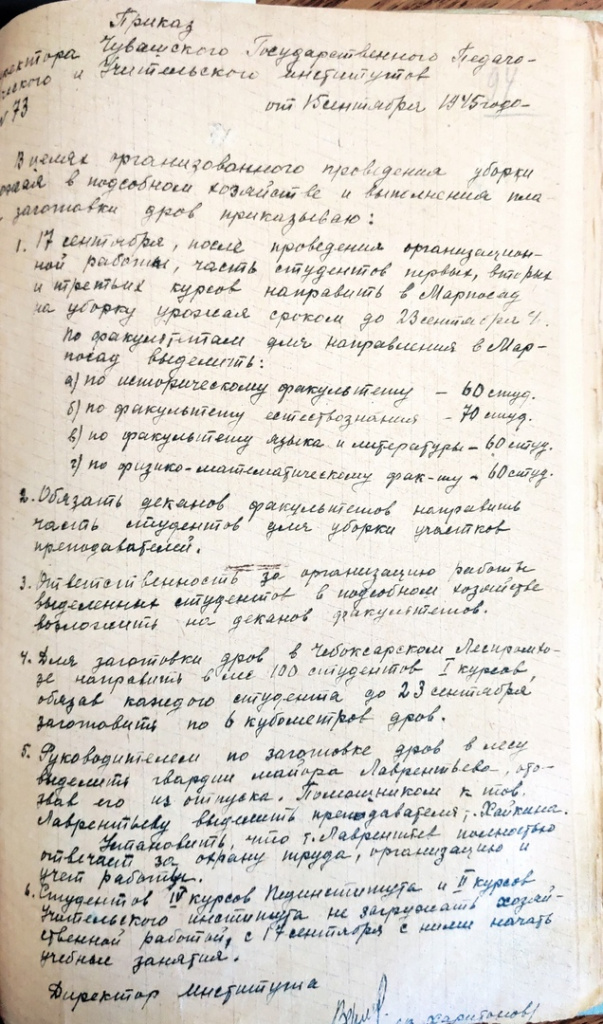 Приказ
директора Чувашского Государственного Педаго-
гического и Учительского институтов
№ 73
94
от 15 сентября 1945 года
В целях организованного проведения уборки
урожая в подсобном хозяйстве и выполнения пла-
заготовки дров приказываю:
1. 17 сентября, после проведения организацион-
ной работы, часть студентов первых, вторых
и третьих курсов направить в Марпосад
на уборку урожая сроком до 23 сентября
По факультетам для направления в Мар-
посад выделить:
а) по историческому факультету – 60 студ.
б) по факультету естествознания – 70 студ.
в) по факультету языка и литературы – 60 студ.
г) по физико-математическому фак-ту – 60 студ.
2. Обязать деканов факультетов направить
часть студентов для уборки участков
преподавателей.
3. Ответственность за организацию работы
выделенных студентов в подсобном хозяйстве
возложить на деканов факультетов.
4. Для заготовки дров в Чебоксарском Леспромхо-
зе направить в лес 100 студентов I курсов,
обязав каждого студента до 23 сентября
заготовить по 6 кубометров дров.
5. Руководителем по заготовке дров в лесу
выделить гвардии майора Лаврентьева, ото-
звав его из отпуска. Помощником к тов.
Лаврентьеву выделить преподавателя т. Хайкина.
Установить, что т. Лаврентьев полностью
отвечает за охрану труда, организацию и
учет работы.
6. Студентов IV курсов Пединститута и II курсов
Учительского института не загружать хозяй-
ственной работой, с 17 сентября с ними начать
учебные занятия.
Директор института
Харитонов/